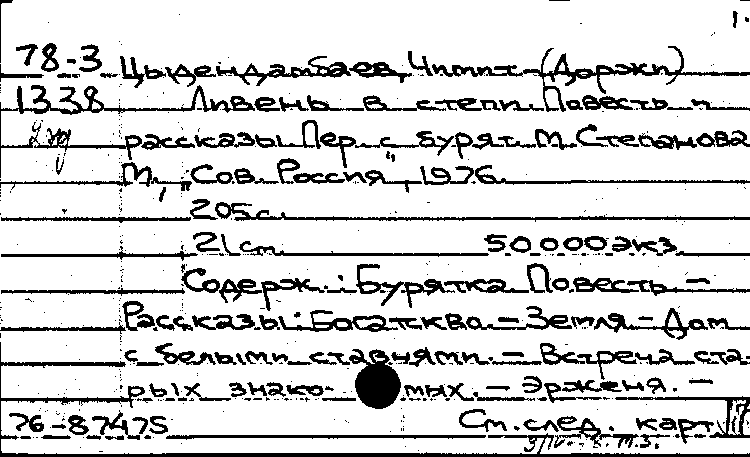 1.
78-3 Цыдендамбаев, Чимит (Доржи)
1338 Ливень в степи. Повесть и
рассказы. Пер. с бурят. М. Степанова
М., "Сов. Россия", 1976.
205 с.
21 см. 50 000 экз.
Содерж.: Бурятка. Повесть. –
Рассказы: Богатства. – Земля – Дом
с белыми ставнями. – Встреча ста-
рых знако- мых. – Эрженя. –
76-87475 См. след. карт